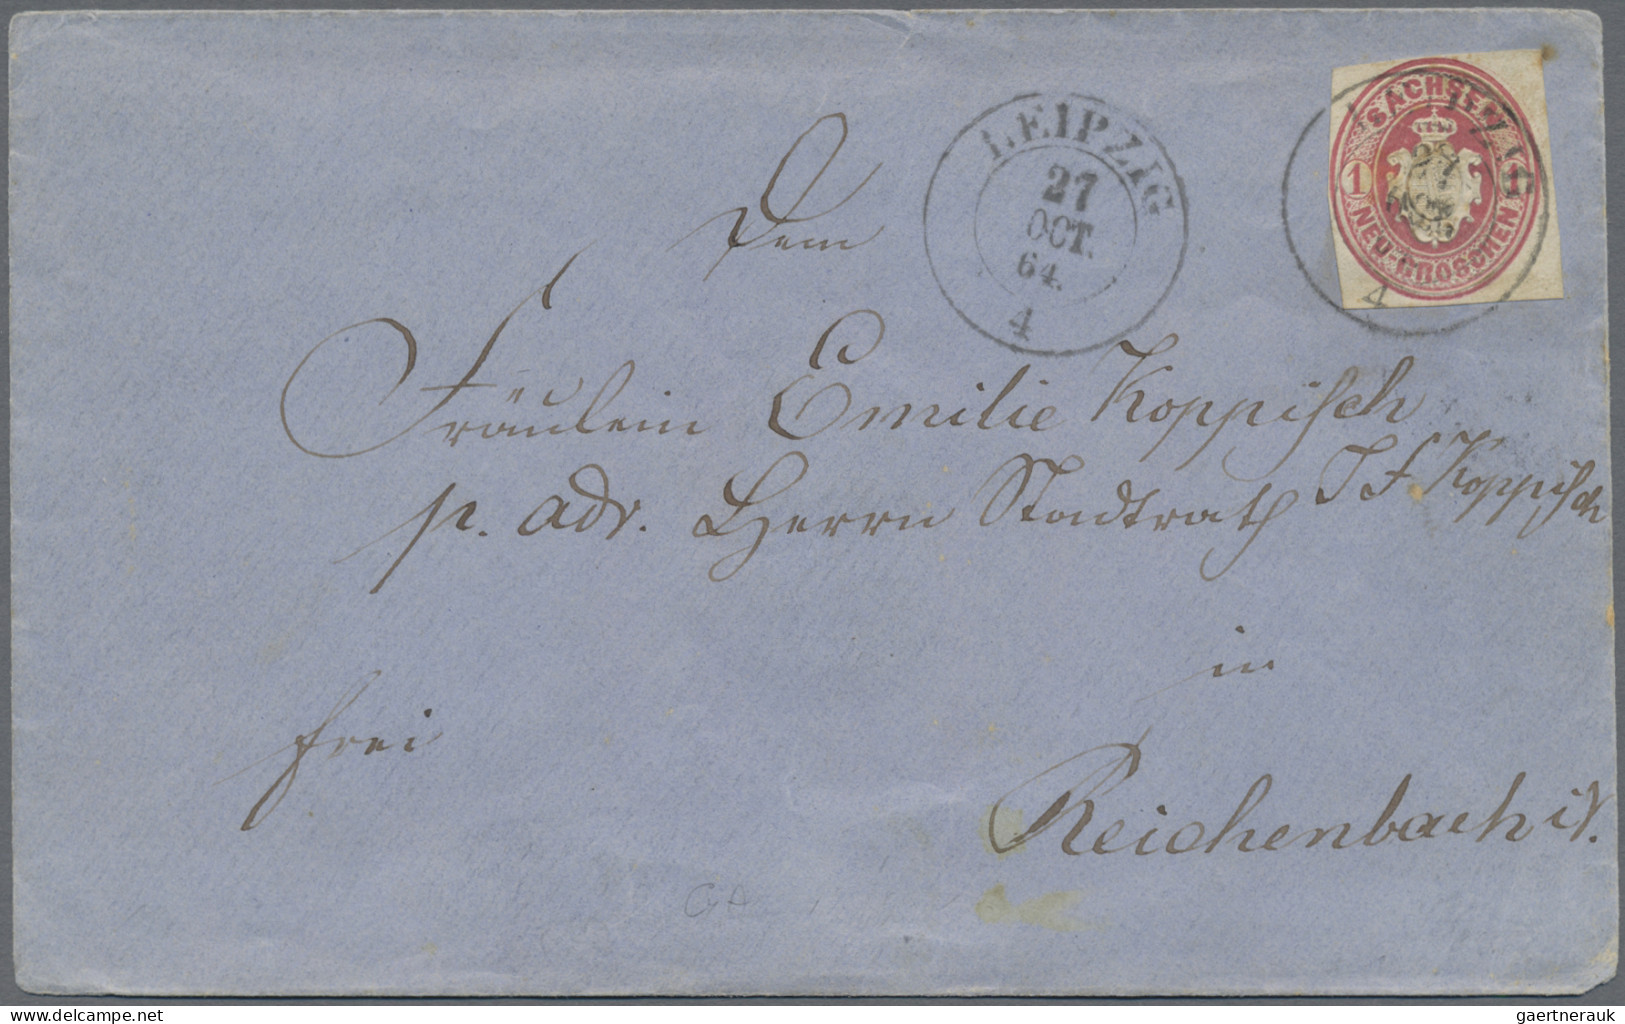 LEIPZIG
27
OCT.
64.
4
SACHSEN
1 1
NEU-GROSCHEN
27
4
Dem
Fräulein Emilie Koppisch
p. adr. Herrn Stadtrath J F Koppisch
in
frei
Reichenbach i/V.
gaertnerauk